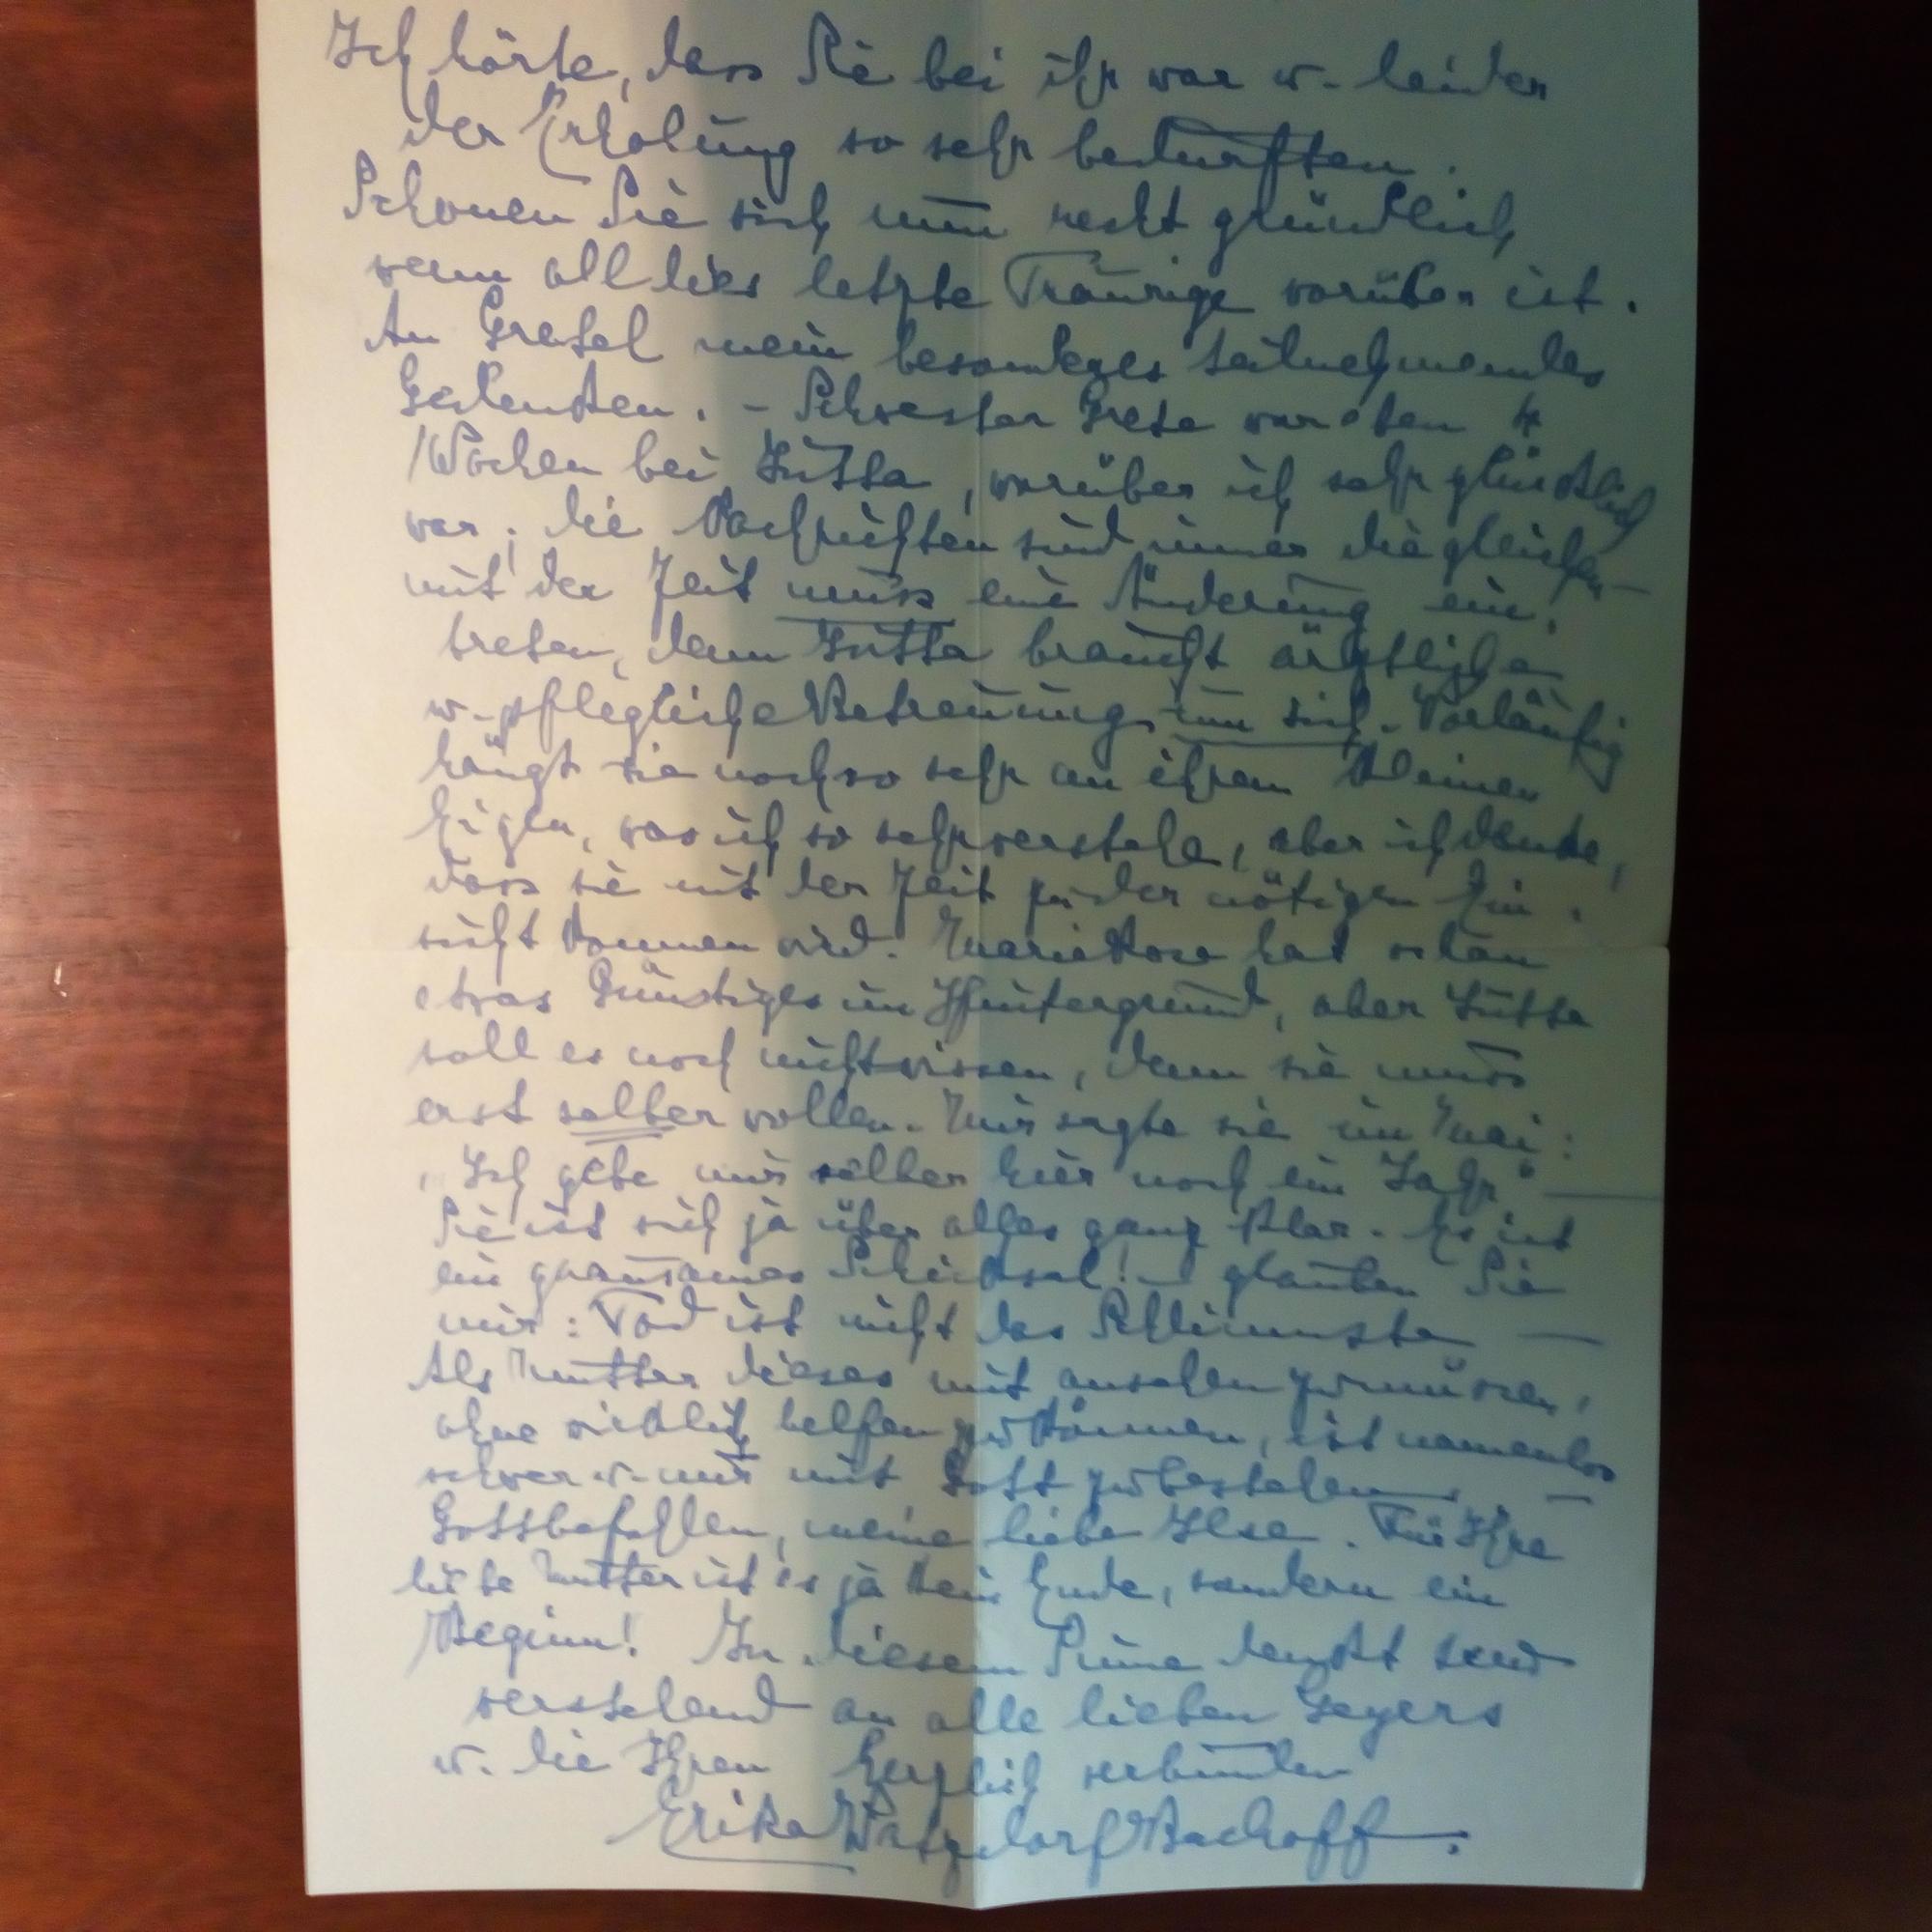 Ich hörte, dass Sie bei ihr war u. leider
der Erholung so sehr bedurften.
Schonen Sie sich nun recht gründlich
wenn all dies letzte Traurige vorüber ist.
An Gretel mein besonderes teilnehmendes
Gedenken. – Schwester Grete war eben 4
Wochen bei Jutta, worüber ich sehr glücklich
war; die Nachrichten sind immer die gleichen –
mit der Zeit muss eine Änderung ein-
treten, denn Jutta braucht ärztliche
u. pflegliche Betreuung um sich. Vorläufig
hängt sie noch so sehr an ihrem kleinen
Eigen, was ich so sehr verstehe, aber ich denke,
dass sie mit der Zeit zu der nötigen Ein-
sicht kommen wird. Marie Rose hat schon
etwas Günstiges im Hintergrund, aber Jutta
soll es noch nicht wissen, denn sie muss
erst selber wollen. Mir sagte sie im Mai:
„Ich gebe mir selber hier noch ein Jahr" —
Sie ist sich ja über alles ganz klar. Es ist
ein grausames Schicksal! – glauben Sie
mir: Tod ist nicht das Schlimmste —
Als Mutter dieses mit ansehen zu müssen,
ohne wirklich helfen zu können, ist namenlos
schwer u. nur mit Gott zu bestehen —
Gottbefohlen, meine liebe Ilse. Für Ihre
liebe Mutter ist es ja kein Ende, sondern ein
Beginn! In diesem Sinne denkt
verstehend an alle lieben Geyers
u. die Ihren herzlich verbunden
Erika Watzdorf Bachoff.